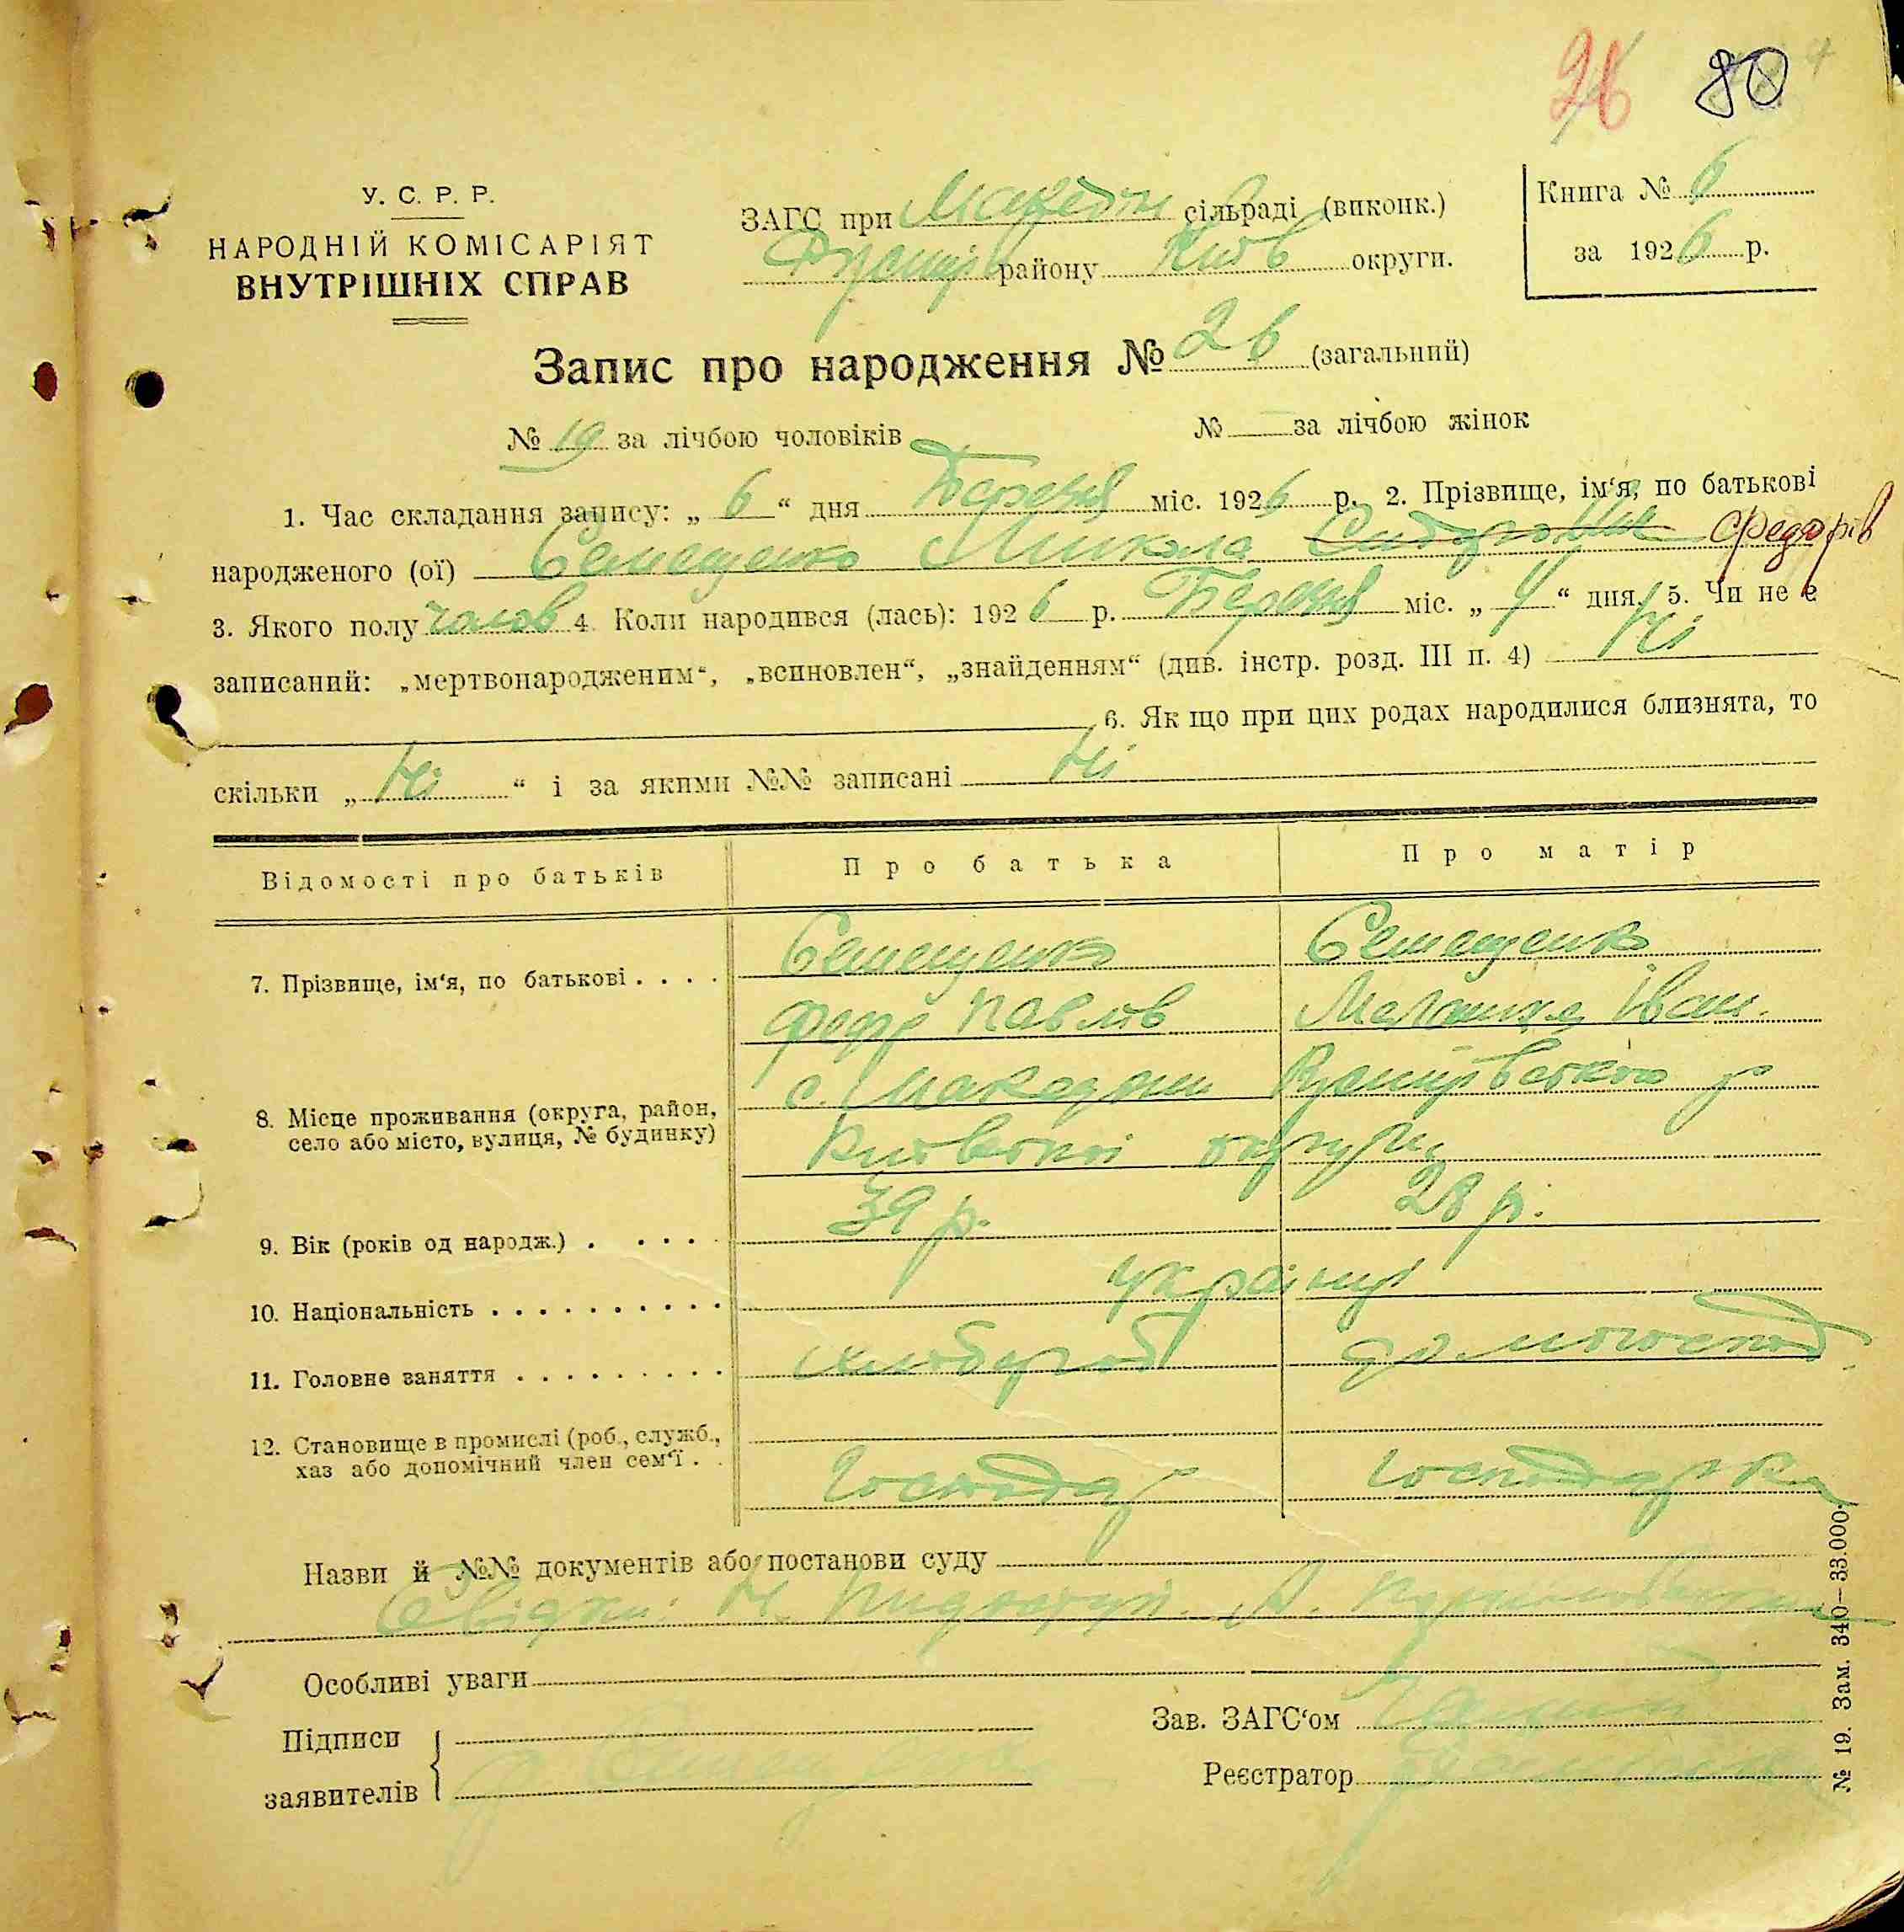 26 80
У. С. Р. Р.
НАРОДНІЙ КОМІСАРІЯТ
ВНУТРІШНІХ СПРАВ
ЗАГС при сільраді (виконк.)
району Київ округи.
Книга № 6
за 1926 р.
Запис про народження № 26 (загальний)
№ 19 за лічбою чоловіків № — за лічбою жінок
1. Час складання запису: „ 6 “ дня Березня міс. 1926 р. 2. Прізвище, ім‘я, по батькові
народженого (ої) Семещенко Микола Федорів
3. Якого полу чолов 4. Коли народився (лась): 1926 р. Березня міс. „ 4 “ дня, 5. Чи не є
записаний: „мертвонародженим“, „всиновлен“, „знайденням“ (див. інстр. розд. III п. 4) Ні
6. Як що при цих родах народилися близнята, то
скільки „ Ні “ і за якими №№ записані Ні
Відомості про батьків Про батька Про матір
7. Прізвище, ім‘я, по батькові . . . . Семещенко Семещенко
Федір Павлів Малашка Іван.
8. Місце проживання (округа, район,
село або місто, вулиця, № будинку)
с. Македони р
Київської округи
9. Вік (років од народж.) . . . . . 39 р. 28 р.
10. Національність . . . . . . . . . . українці
11. Головне заняття . . . . . . . . . хлібороб домогоспод.
12. Становище в промислі (роб., служб.,
хаз або допомічний член сем‘ї . .
Господар господарка
Назви й №№ документів або постанови суду
Свідки: Н. А.
Особливі уваги
Підписи
заявителів
Зав. ЗАГС‘ом
Реєстратор
№ 19. Зам. 340—33.000.